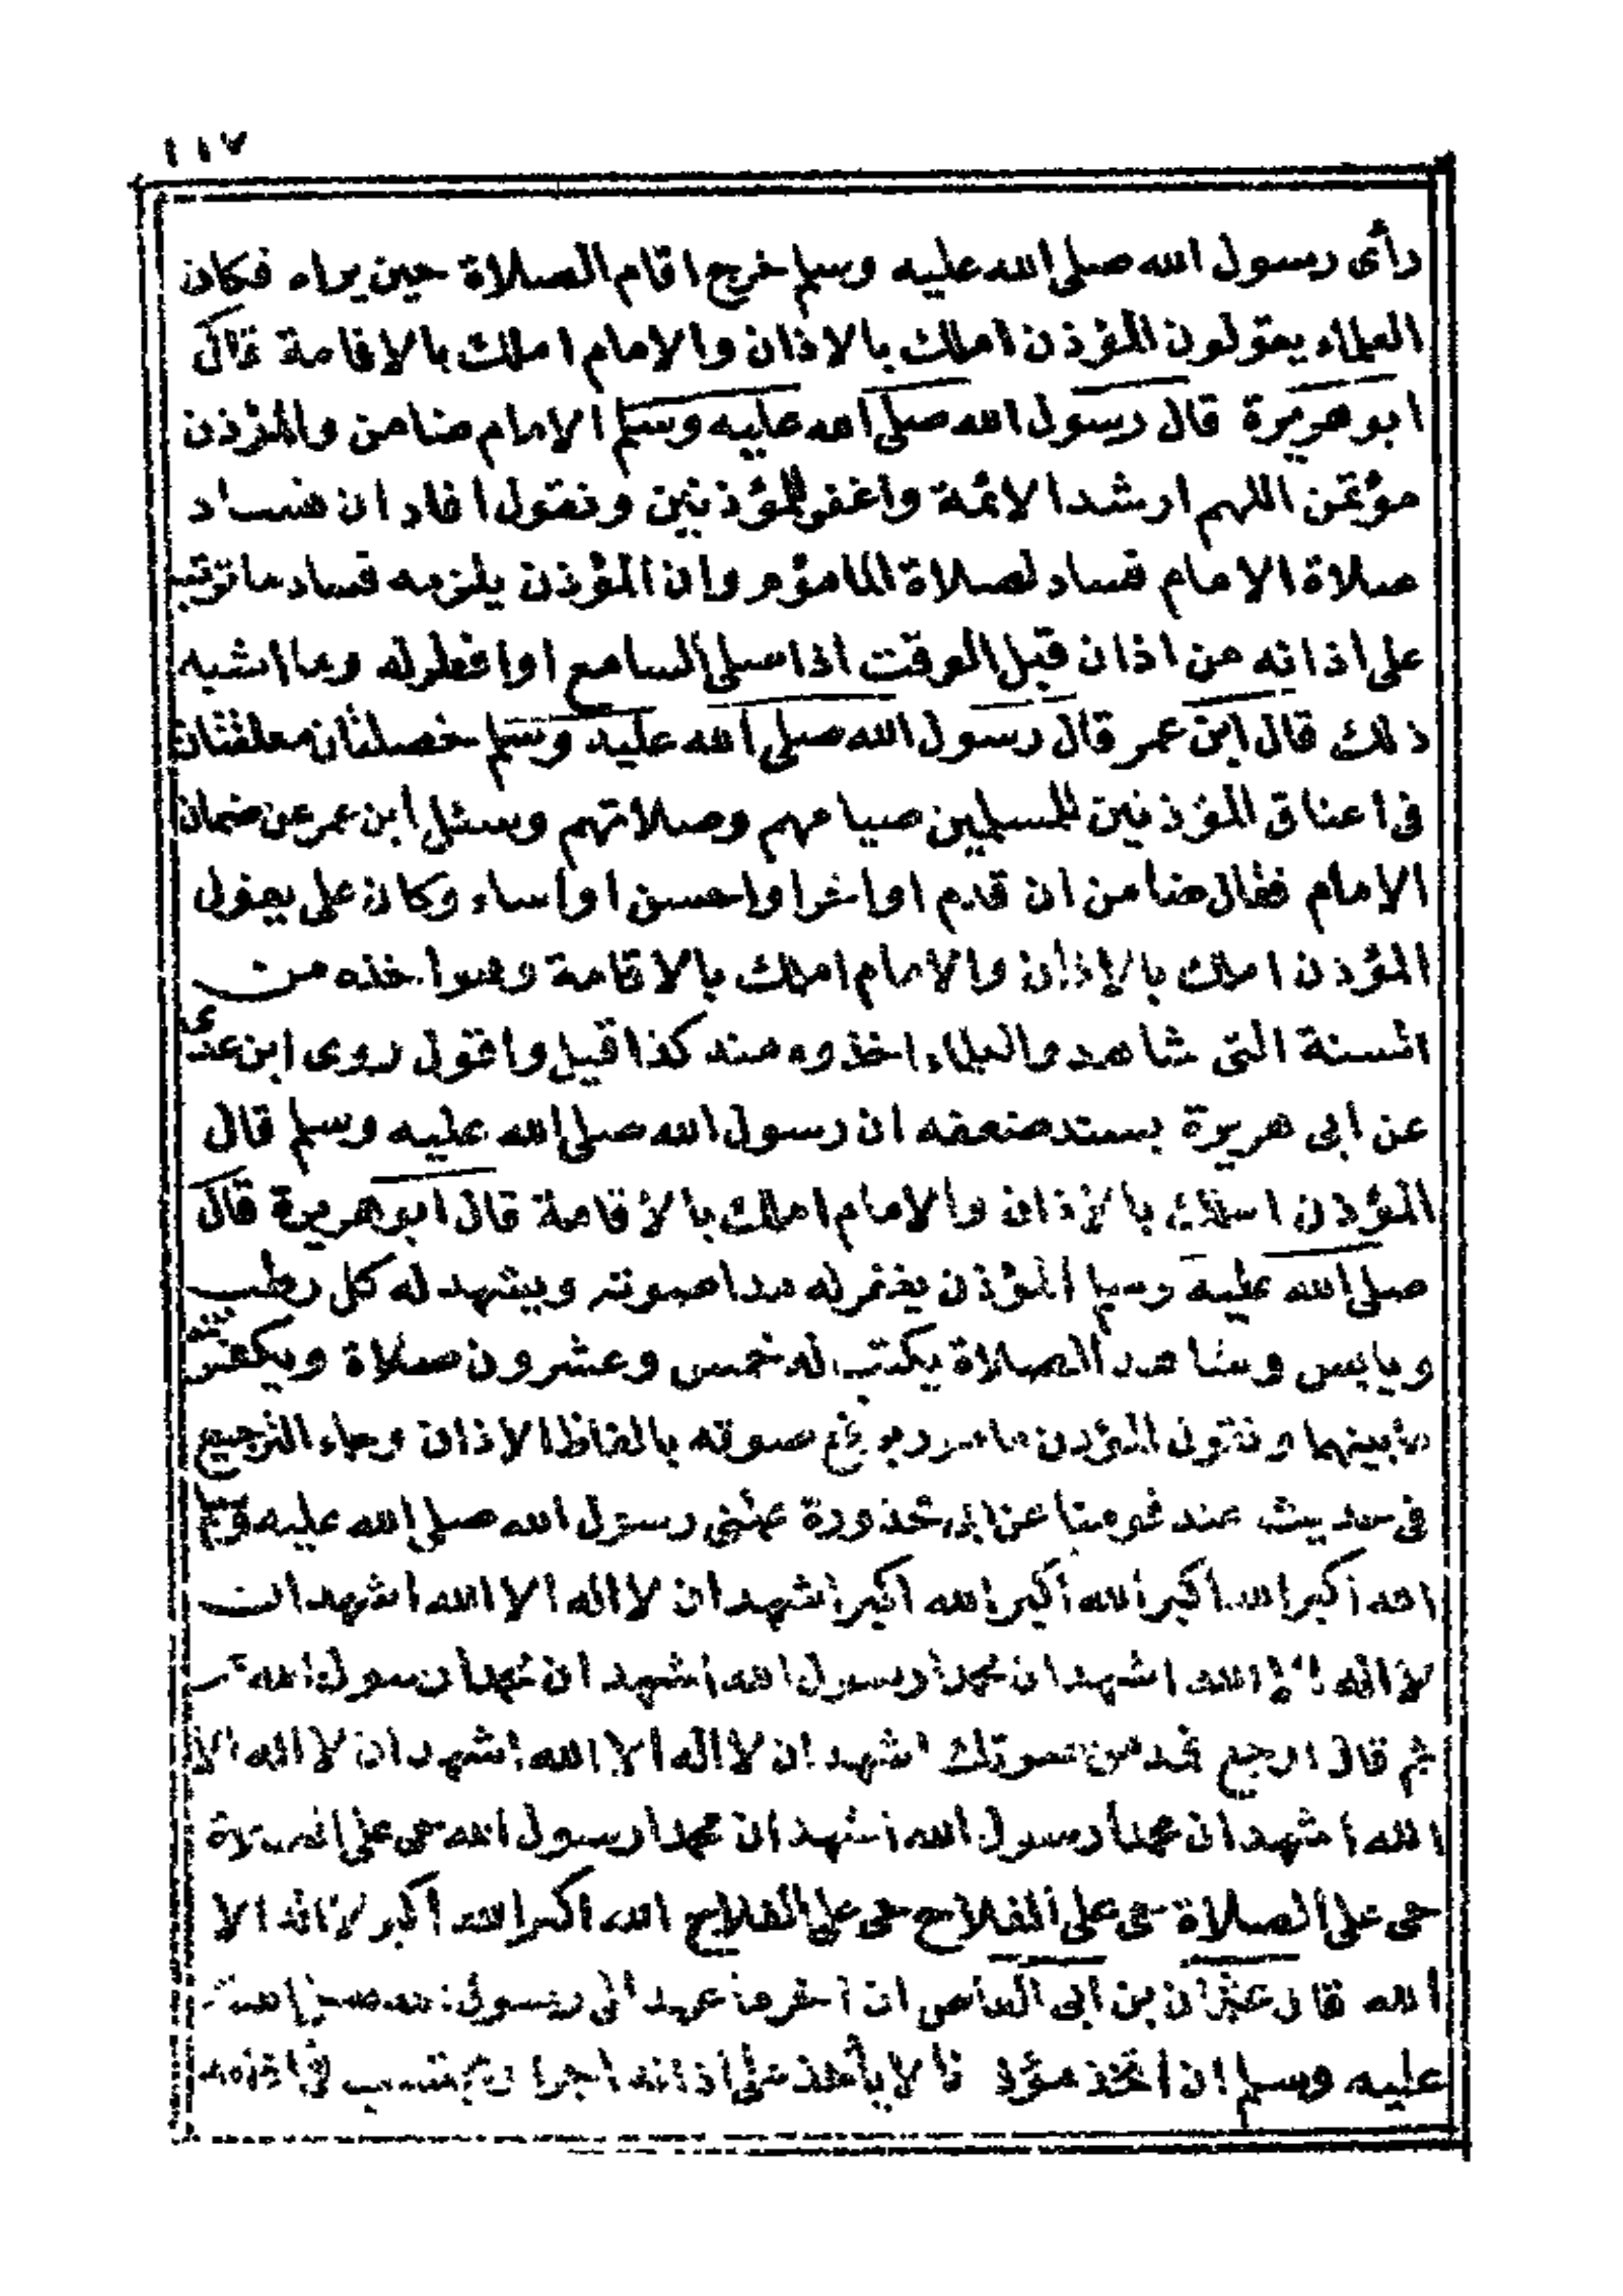 ١١٧
رأى رسول الله صلى الله عليه وسلم خرج اقام الصلاة حين يراه فكان
العلماء يقولون المؤذن املك بالاذان والامام املك بالاقامة قال
ابو هريرة قال رسول الله صلى الله عليه وسلم الامام ضامن والمؤذن
مؤتمن اللهم ارشد الائمة واغفر للمؤذنين ونقول افاد ان فساد
صلاة الامام فساد لصلاة المامؤم وان المؤذن يلزمه فساد ما ترتب
على اذانه من اذان قبل الوقت اذا صلى السامع او افطر له وما اشبه
ذلك قال ابن عمر قال رسول الله صلى الله عليه وسلم خصلتان معلقتان
فى اعناق المؤذنين للمسلمين صيامهم وصلاتهم وسئل ابن عمر عن ضمان
الامام فقال ضامن ان قدم او اخر او احسن او اساء وكان على يقول
المؤذن املك بالاذان والامام املك بالاقامة وهو اخذه من
السنة التى شاهد والعلماء اخذوه منه كذا قيل واقول روى ابن عدى
عن ابى هريرة بسند ضعفه ان رسول الله صلى الله عليه وسلم قال
المؤذن املك بالاذان والامام املك بالاقامة قال ابو هريرة قال
صلى الله عليه وسلم المؤذن يغفر له مدا صوته ويشهد له كل رطب
ويابس وشاهد الصلاة يكتب له خمس وعشرون صلاة ويكفر عنه
ما بينهما ونقول المؤذن صوته بالفاظ الاذان وجاء الترجيع
فى حديث عند قومنا عن ابى محذورة علمنى رسول الله صلى الله عليه وسلم
الله اكبر الله اكبر الله اكبر الله اكبر اشهد ان لا اله الا الله اشهد ان
لا اله الا الله اشهد ان محمدا رسول الله اشهد ان محمدا رسول الله
ثم قال ارجع فمد من صوتك اشهد ان لا اله الا الله اشهد ان لا اله الا
الله اشهد ان محمدا رسول الله اشهد ان محمدا رسول الله حى على الصلاة
حى على الصلاة حى على الفلاح حى على الفلاح الله اكبر الله اكبر لا اله الا
الله قال عثمان بن ابى العاص ان اخر ما عهد الى رسول الله صلى الله
عليه وسلم ان اتخذ مؤذنا لا يأخذ على اذانه اجرا